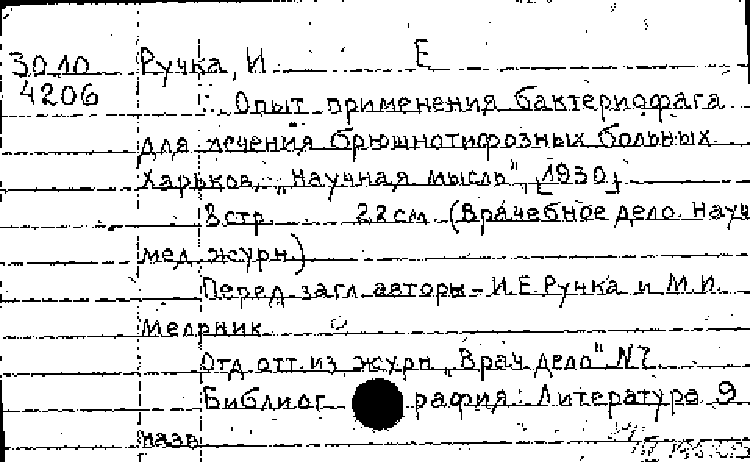 3010 Ручка, И Е
4206 Опыт применения бактериофага
для лечения брюшнотифозных больных
Харьков, "Научная мысль", [1930]
8 стр. 22 см. (Врачебное дело. Науч
мед. журн.)
Перед загл. авторы - И.Е. Ручка и М.И.
Мельник
Отд. отт. из журн. "Врач. дело" №7.
Библиография: Литература 9
назв